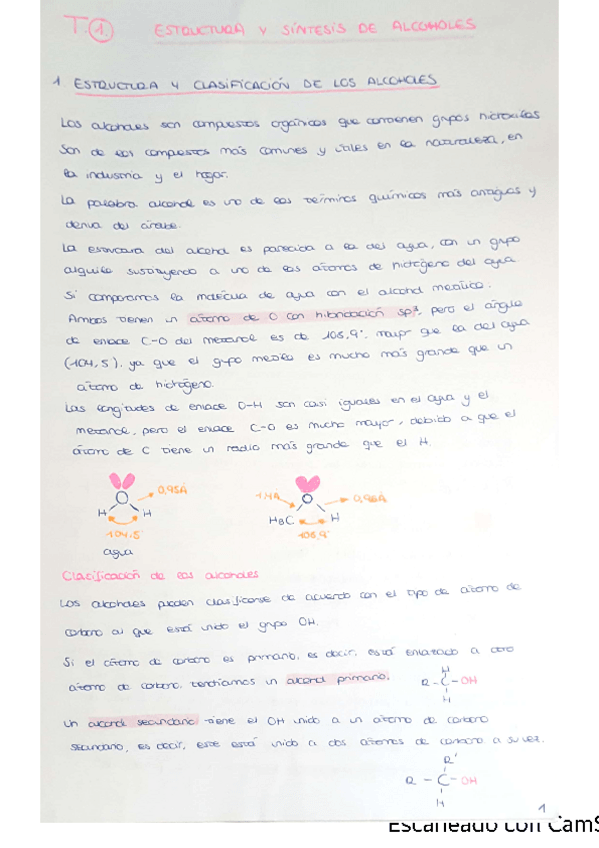 T.1. ESTRUCTURA Y SÍNTESIS DE ALCOHOLES
1 ESTRUCTURA Y CLASIFICACIÓN DE LOS ALCOHOLES
Los alcoholes son compuestos orgánicos que contienen grupos hidroxilos
Son de los compuestos más comunes y útiles en la naturaleza, en
la industria y el hogar.
La palabra alcohol es uno de los términos químicos más antiguos y
deriva del árabe.
La estructura del alcohol es parecida a la del agua, con un grupo
alquilo sustituyendo a uno de los átomos de hidrógeno del agua
Si comparamos la molécula de agua con el alcohol metílico.
Ambos tienen un átomo de O con hibridación sp³, pero el ángulo
de enlace C-O del metanol es de 108,9°, mayor que la del agua
(104,5), ya que el grupo metilo es mucho más grande que un
átomo de hidrógeno.
Las longitudes de enlace O-H son casi iguales en el agua y el
metanol, pero el enlace C-O es mucho mayor, debido a que el
átomo de C tiene un radio más grande que el H.
O 0,95Å
H H
104,5°
agua
1,4Å O 0,96Å
H3C H
108,9°
Clasificación de los alcoholes
Los alcoholes pueden clasificarse de acuerdo con el tipo de átomo de
carbono al que está unido el grupo OH.
Si el átomo de carbono es primario, es decir, está enlazado a otro
átomo de carbono, tendríamos un alcohol primario.
H
R-C-OH
H
Un alcohol secundario tiene el OH unido a un átomo de carbono
secundario, es decir, este está unido a dos átomos de carbono a su vez.
R'
R - C - OH
H
1
Escaneado con CamS